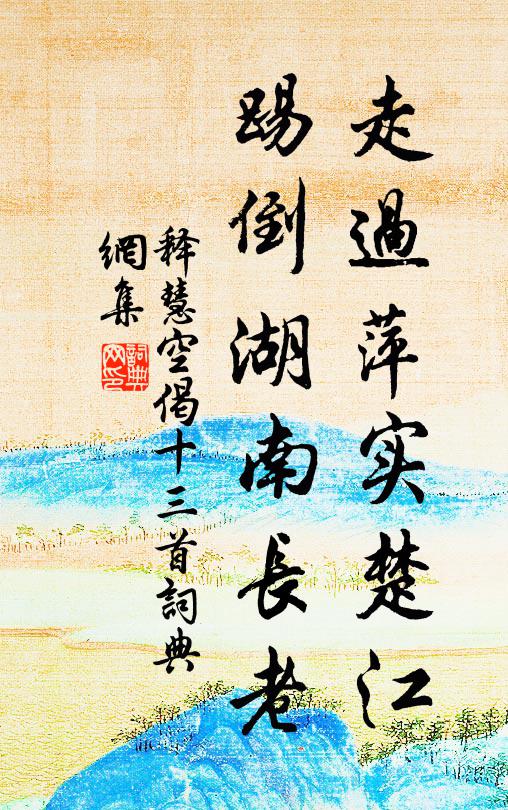 走過萍实楚江
踢倒湖南長老
释慧空偈十三首詞典
網集
詞典
网印